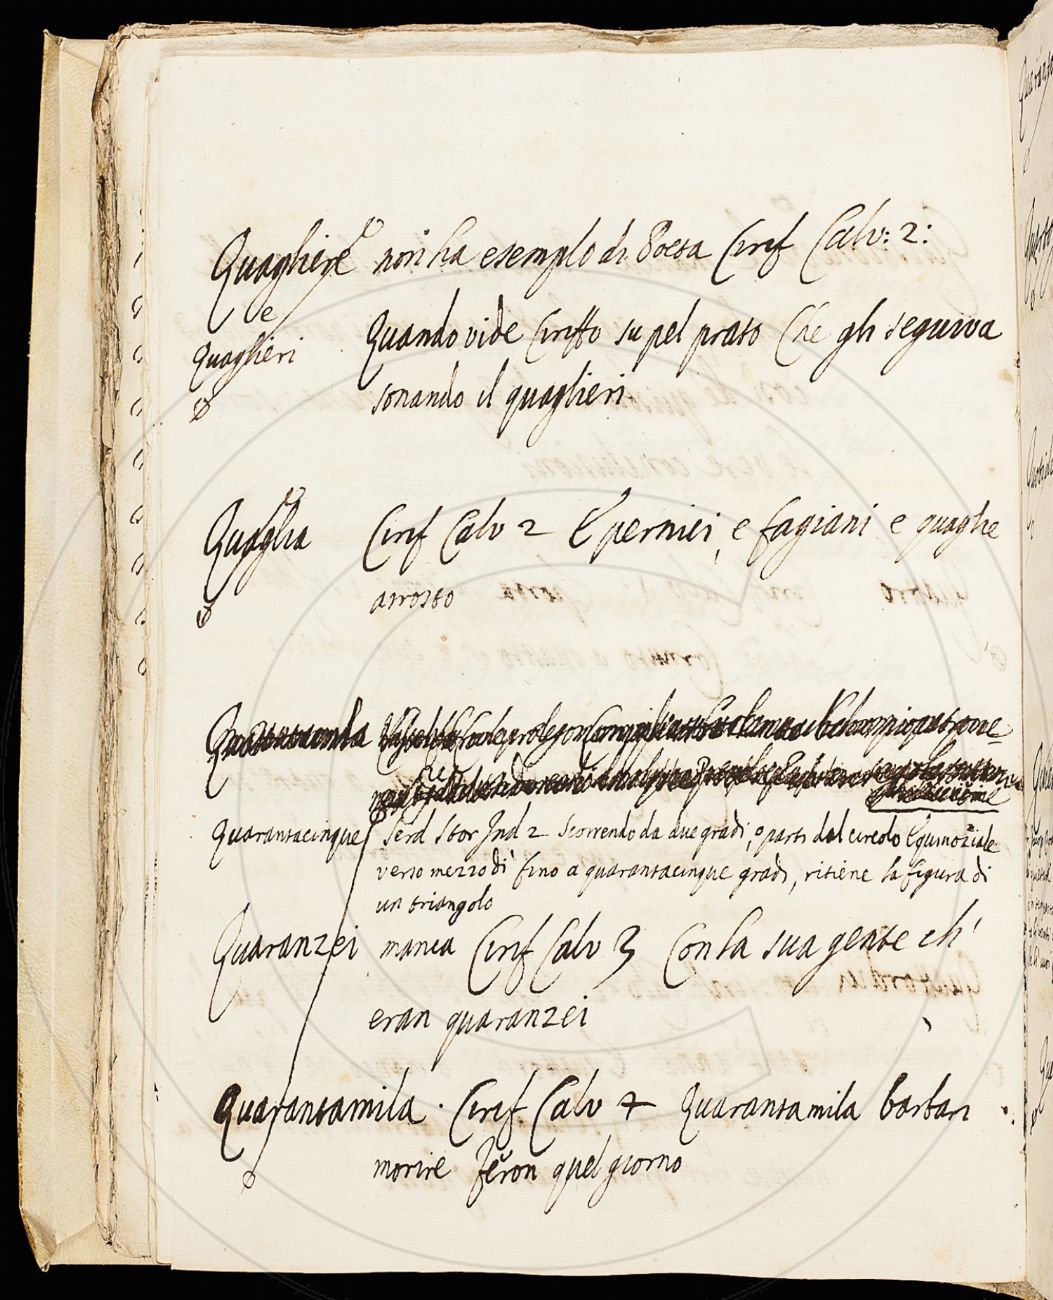 Quagliere non ha esemplo di Poeta Ciref Calv: 2:
e
Quaglieri Quando vide Cireffo su pel prato Che gli seguiva
sonando il quaglieri
Quaglia Ciref Calv 2 E pernici, e fagiani e quaglie
arrosto
Quarantacinque Serd Stor Ind 2 scorrendo da due gradi, o parti del circolo Equinoziale
verso mezzodì fino a quarantacinque gradi, ritiene la figura di
un triangolo
Quaranzei manca Ciref Calv 3 Con la sua gente ch'
eran quaranzei
Quarantamila. Ciref Calv 4 Quarantamila barbari
morire feron quel giorno